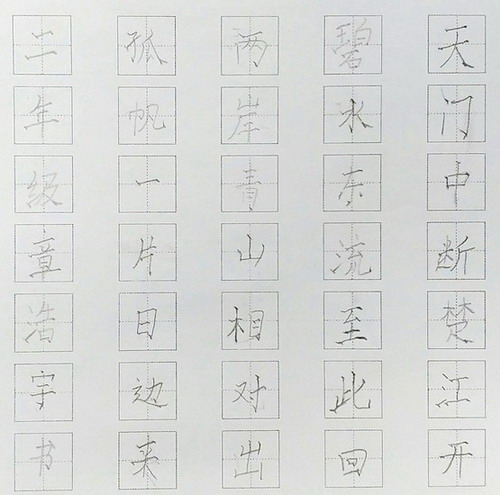 天门中断楚江开
碧水东流至此回
两岸青山相对出
孤帆一片日边来
二年级章浩宇书